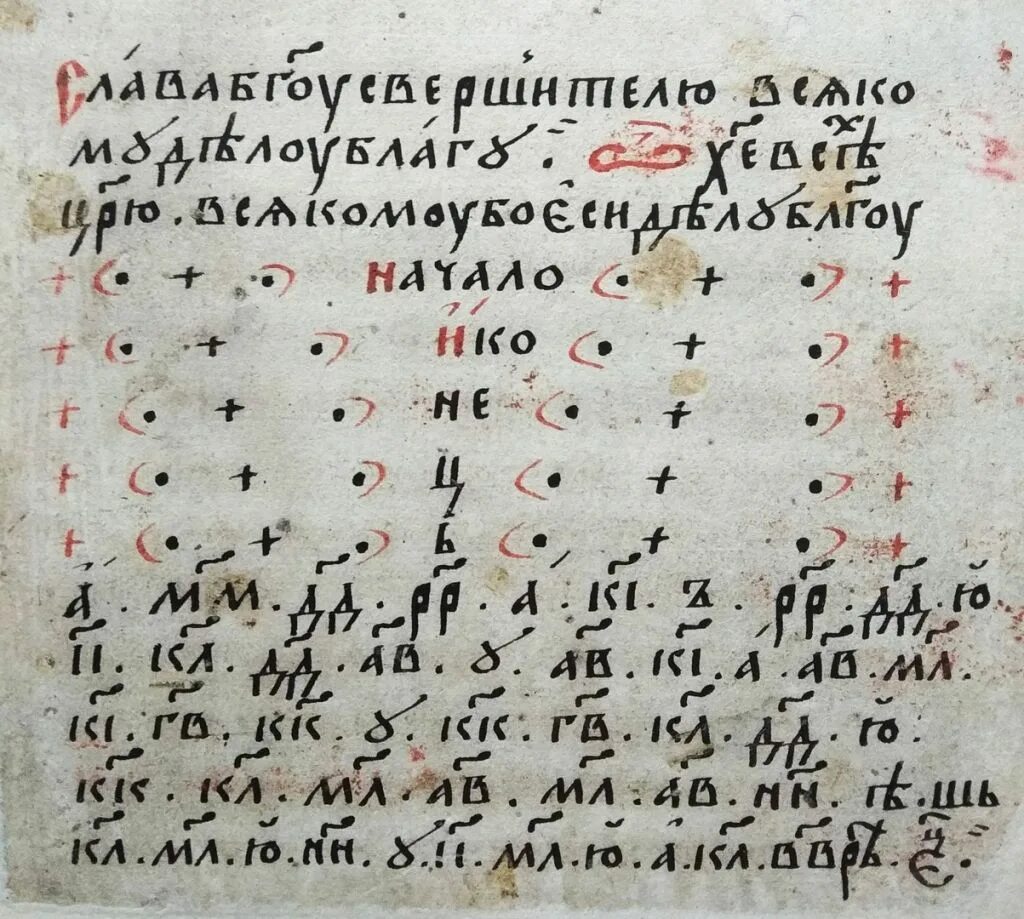 Слава бг҃оу свершителю всяко
мꙋ дѣлоу благꙋ. х҃е всѣх
цр҃ю. всякомоу боє си дѣлꙋ блг҃оу
+ (• + •) начало (• + •) +
+ (• + •) и ко (• + •) +
+ (• + •) не (• + •) +
+ (• + •) ц (• + •) +
+ (• + •) ь (• + •) +
а. м҃м. д҃д. р҃р. а. к҃і. ъ. р҃р. д҃д. ю
і҃і. к҃л. д҃д. а҃в. ꙋ. а҃в. к҃і. а. а҃в. м҃л.
к҃і. г҃в. к҃к. ꙋ. к҃к. г҃в. к҃л. д҃д. ю:
к҃к. к҃л. м҃л. а҃в. м҃л. а҃в. н҃н. ѣ. шь
к҃л. м҃л. ю. н҃н. ꙋ. і҃і. м҃л. ю. а. к҃л. в҃в